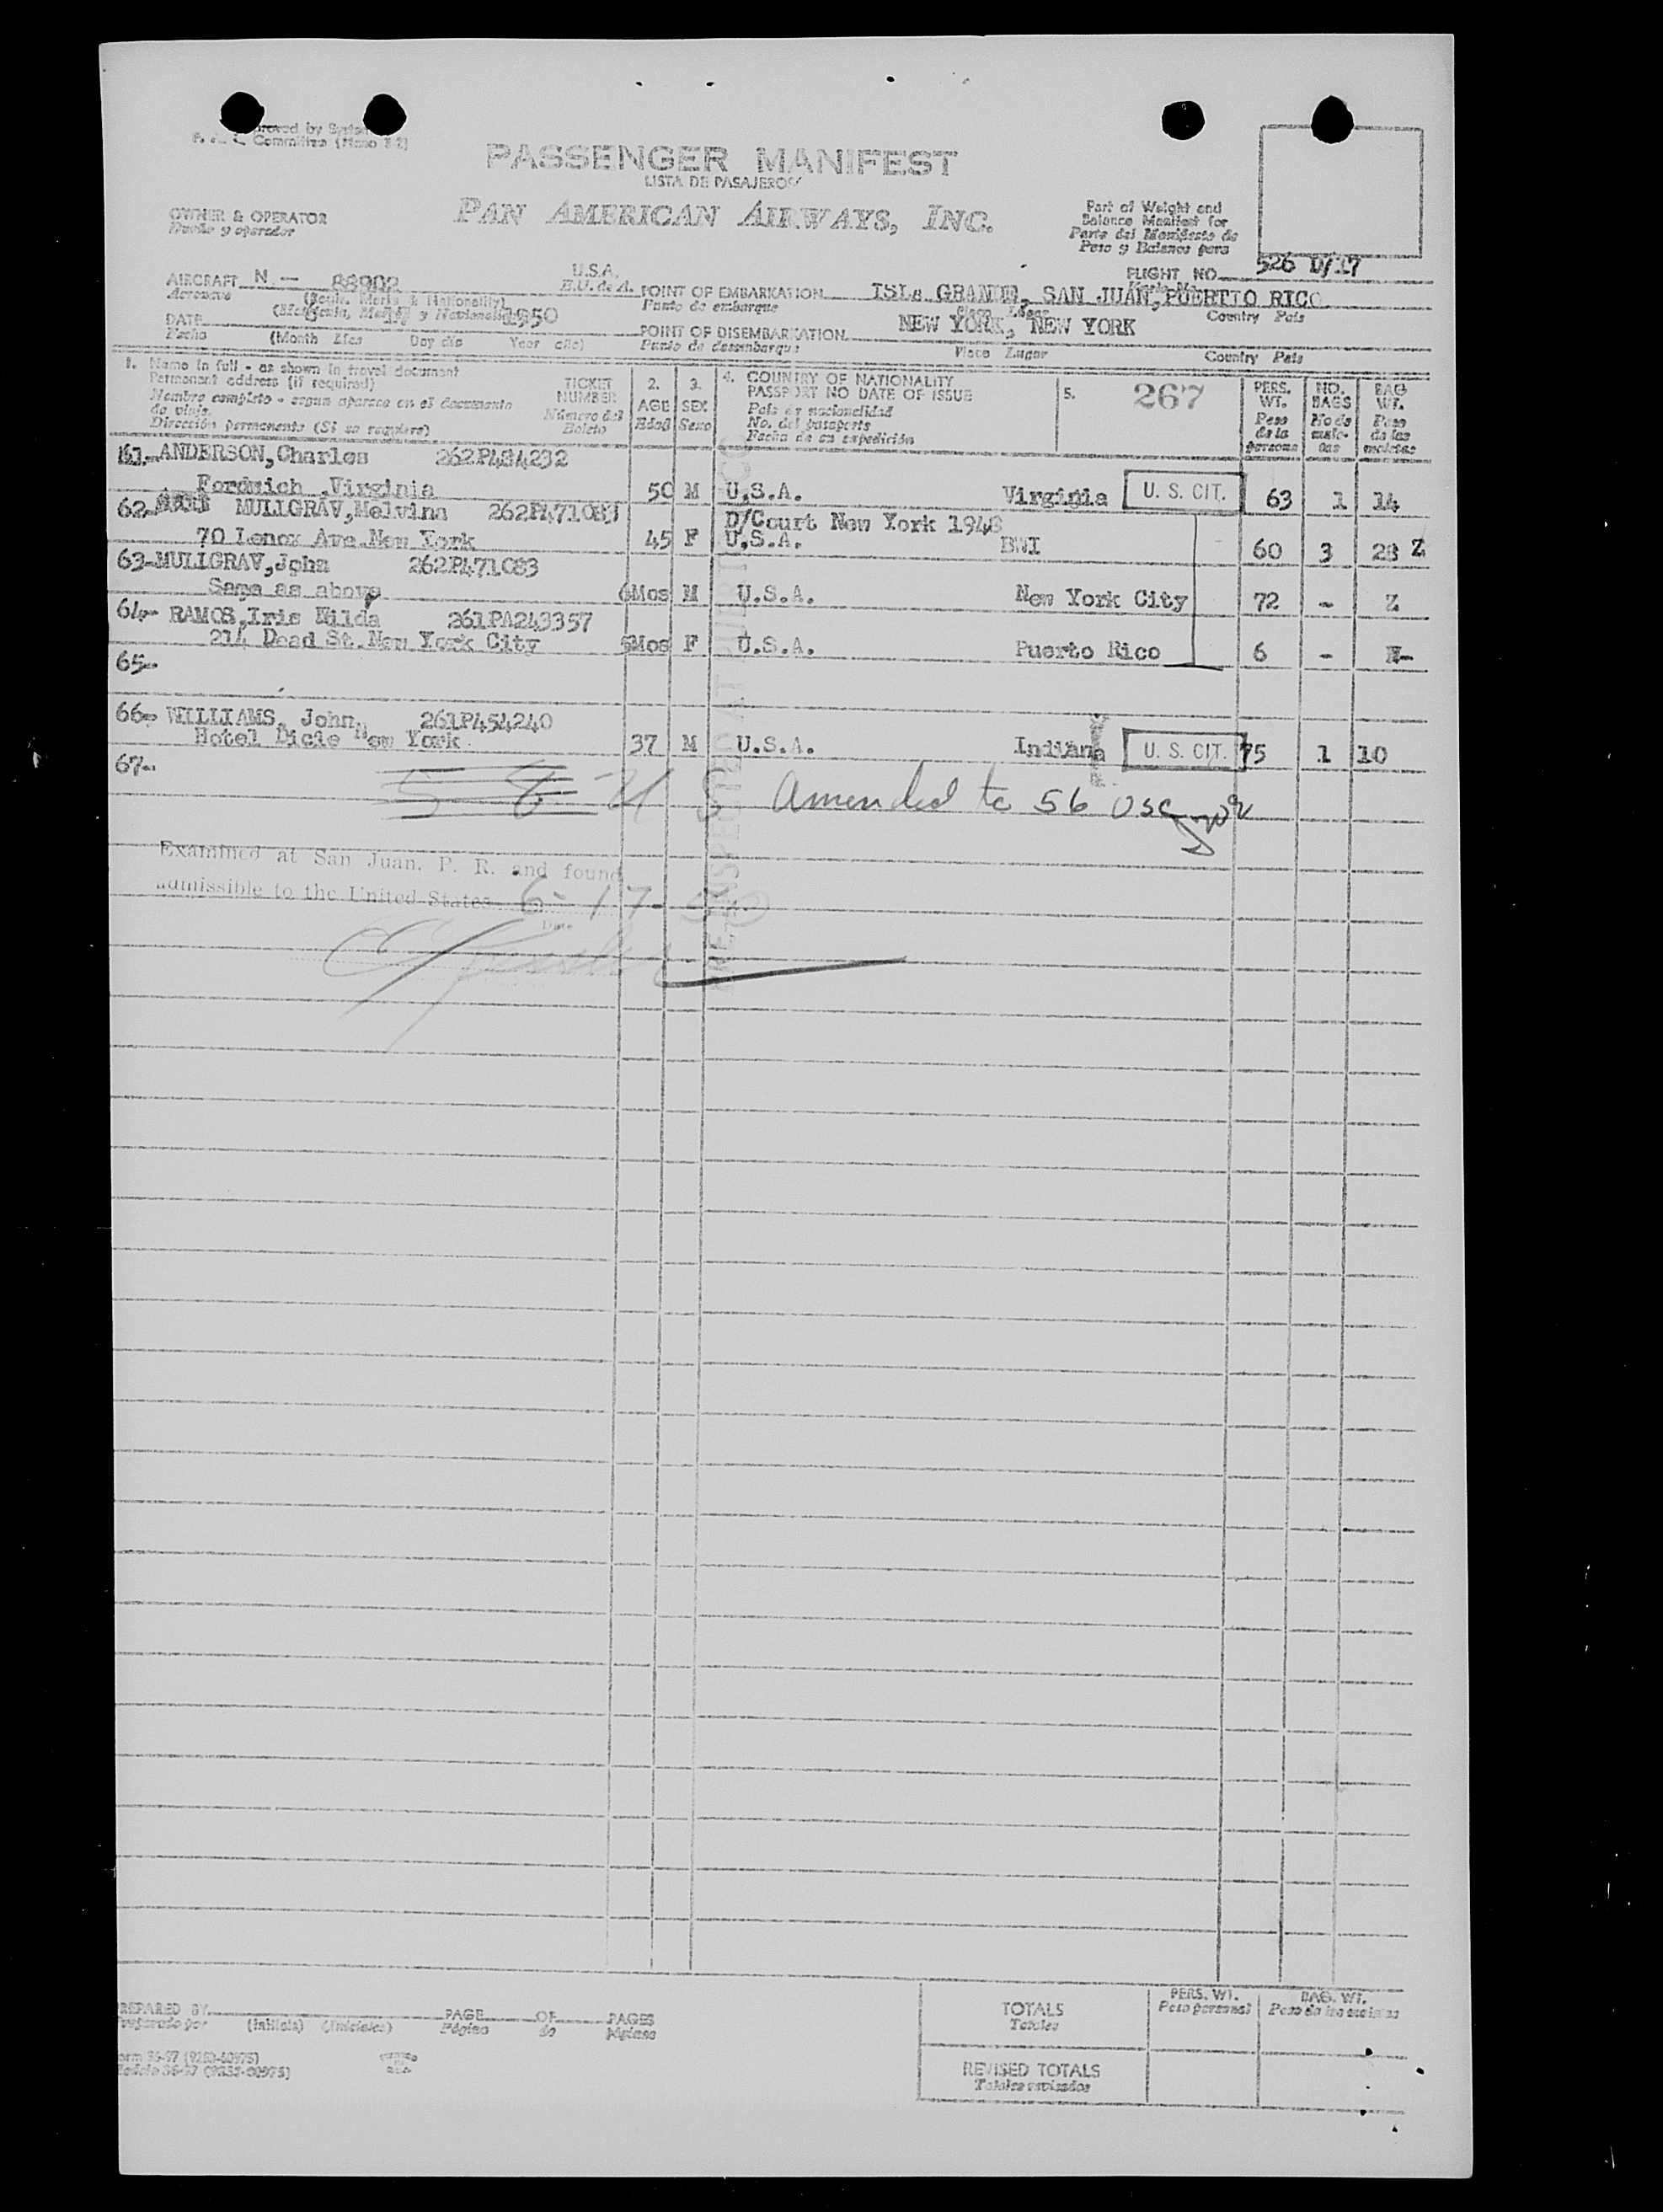 Approved by System
Committee (Mano
PASSENGER MANIFEST
LISTA DE PASAJEROS
OWNER & OPERATOR
Dueño y operador
PAN AMERICAN AIRWAYS, INC.
Part of Weight and
Balance Manifest for
Parte del Manifiesto de
Peso y Balance para
FLIGHT NO. 526 D/17
AIRCRAFT N - 88902 U.S.A.
Aeronave E.U. de A.
(Regis. Marks & Nationality)
POINT OF EMBARKATION ISLa GRANDE, SAN JUAN, PUERTTO RICO
Punto de embarque Place Lugar Country Pais
DATE 1950
Fecha (Month Mes Day día Year año)
POINT OF DISEMBARKATION NEW YORK, NEW YORK
Punto de desembarque Place Lugar Country Pais
1. Name in full - as shown in travel document
Permanent address (if required)
Nombre completo - segun aparece en el documento
de viaje.
Dirección permanente (Si se requiere)
TICKET
NUMBER
Número del
Boleto
2.
AGE
Edad
3.
SEX
Sexo
4. COUNTRY OF NATIONALITY
PASSPORT NO DATE OF ISSUE
Pais de nacionalidad
No. del pasaporte
Fecha de su expedición
5. 267
PERS.
WT.
Peso
de la
persona
NO.
BAGS
No de
male-
tas
BAG
WT.
Peso
de las
maletas
61.- ANDERSON, Charles 262P434232
Fordwich .Virginia 50 M U.S.A. Virginia U. S. CIT. 63 1 14
62- MULLGRAV, Melvina 262P471083 D/Court New York 1948
70 Lenox Ave.New York 45 F U.S.A. BWI 60 3 28 Z
63-MULLGRAV, John 262P471083
Same as above 6Mos M U.S.A. New York City 72 - Z
64- RAMOS, Iris Nilda 261PA243357
214 Dead St.New York City 5Mos F U.S.A. Puerto Rico 6 - N-
65-
66- WILLIAMS, John, 261P454240
Hotel Dicie New York 37 M U.S.A. Indiana U. S. CIT. 75 1 10
67-
amended to 56 USC
Examined at San Juan, P. R. and found
admissible to the United States 6-17-50
Date
PREPARED BY PAGE OF PAGES
Preparado por (Initials) (Iniciales) Página de páginas
TOTALS
Totales
PERS. WT.
Peso personal
BAG. WT.
REVISED TOTALS
Totales revisados